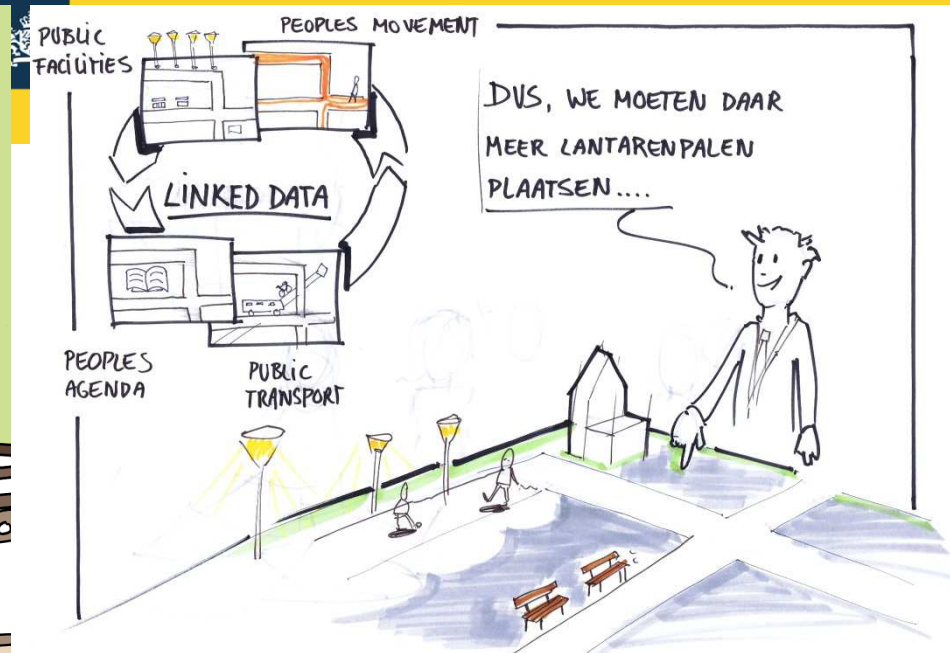 PUBLIC
FACILITIES
PEOPLES MOVEMENT
LINKED DATA
PEOPLES
AGENDA
PUBLIC
TRANSPORT
DUS, WE MOETEN DAAR
MEER LANTARENPALEN
PLAATSEN....